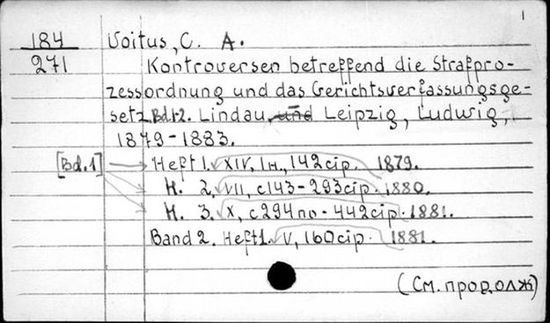 1
184
271
Voitus, C. A.
Kontroversen betreffend die Strafpro-
zessordnung und das Gerichtsverfassungsge-
setz Bd.1-2. Lindau, und Leipzig, Ludwig,
1879-1883.
[Bd.1] Heft 1. XIV, 1н., 142 стр. 1879.
H. 2, VII, с 143-293 стр. 1880.
H. 3. X, с 294 по - 442 стр. 1881.
Band 2. Heft 1. V, 160 стр. 1881.
(См. продолж)